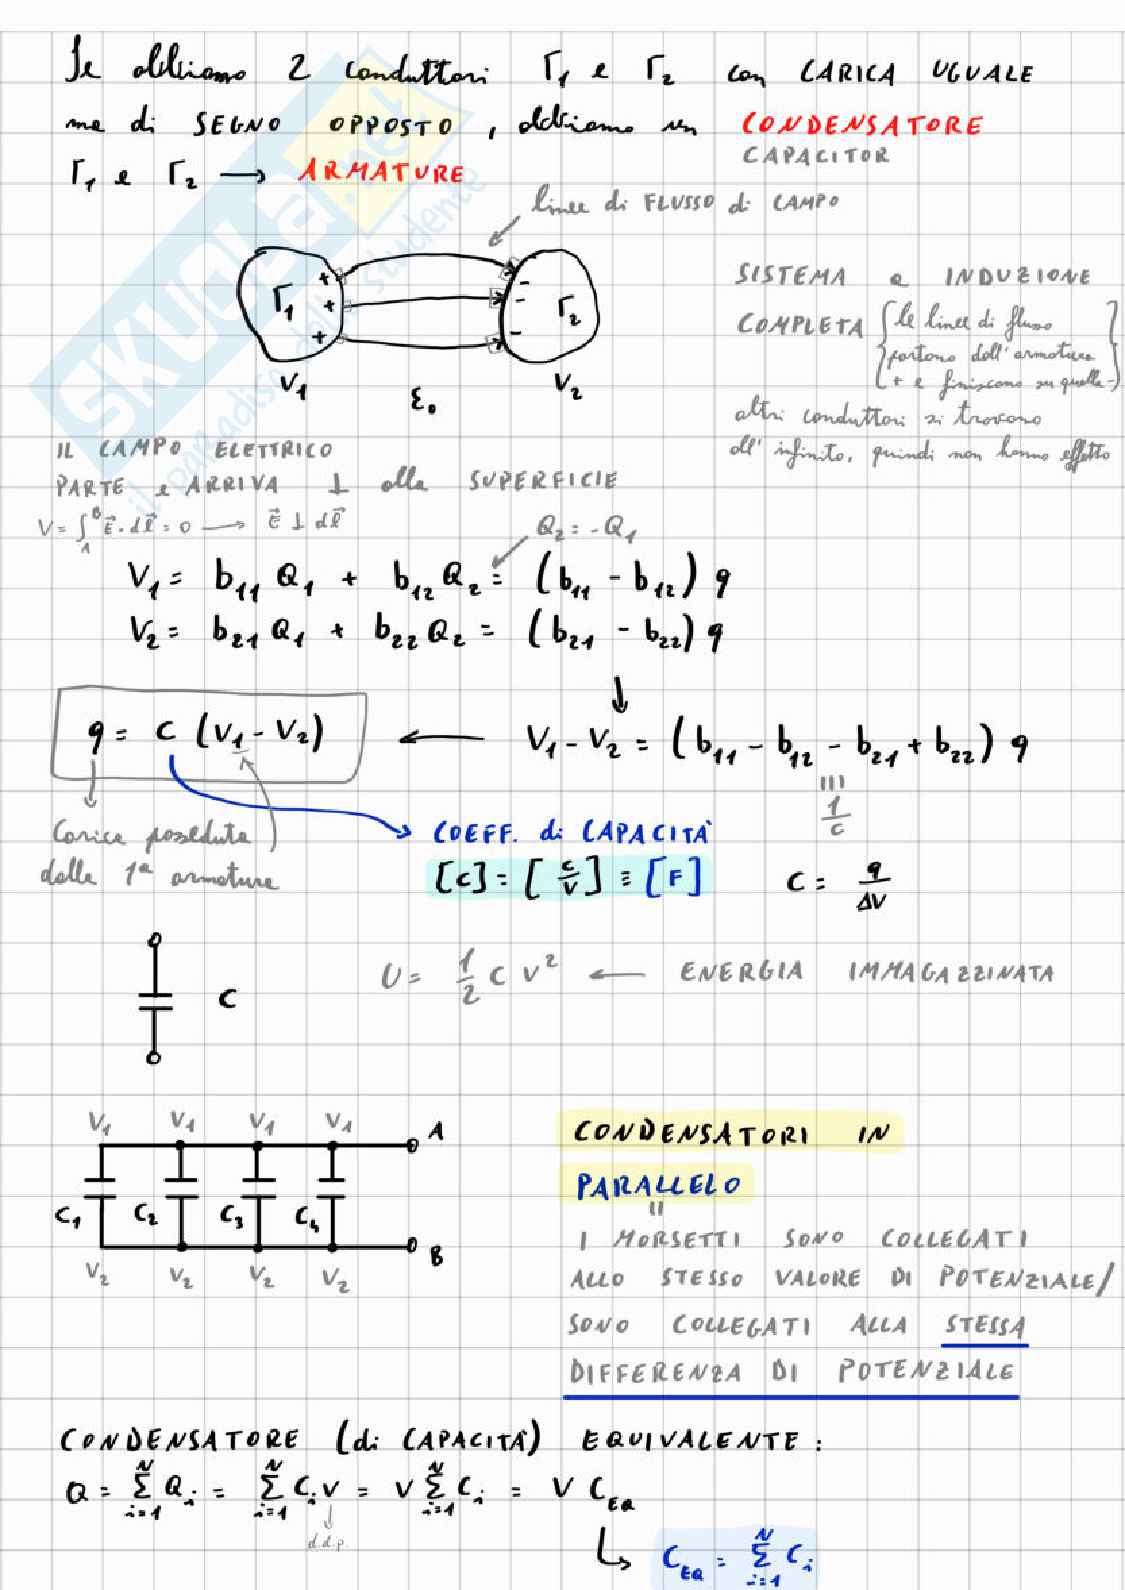 Se abbiamo 2 conduttori Γ₁ e Γ₂ con CARICA UGUALE
ma di SEGNO OPPOSTO, abbiamo un CONDENSATORE
CAPACITOR
Γ₁ e Γ₂ → ARMATURE
linee di FLUSSO di CAMPO
Γ₁ + + + - - - Γ₂
V₁ ε₀ V₂
SISTEMA a INDUZIONE
COMPLETA {le linee di flusso
partono dall'armatura
+ e finiscono su quella -}
altri conduttori si trovano
all'infinito, quindi non hanno effetto
IL CAMPO ELETTRICO
PARTE e ARRIVA ⊥ alla SUPERFICIE
V = ∫_A^B E⃗ · dl⃗ = 0 → E⃗ ⊥ dl⃗
Q₂ = -Q₁
V₁ = b₁₁ Q₁ + b₁₂ Q₂ = (b₁₁ - b₁₂) q
V₂ = b₂₁ Q₁ + b₂₂ Q₂ = (b₂₁ - b₂₂) q
↓
q = C (V₁ - V₂) ← V₁ - V₂ = (b₁₁ - b₁₂ - b₂₁ + b₂₂) q
≡
1/C
Carica posseduta
dalla 1ª armatura
COEFF. di CAPACITÀ
[C] = [C/V] ≡ [F]
C = q/ΔV
C
U = 1/2 C V² ← ENERGIA IMMAGAZZINATA
V₁ V₁ V₁ V₁ A
C₁ C₂ C₃ C₄
B
V₂ V₂ V₂ V₂
CONDENSATORI IN
PARALLELO
=
I MORSETTI SONO COLLEGATI
ALLO STESSO VALORE DI POTENZIALE/
SONO COLLEGATI ALLA STESSA
DIFFERENZA DI POTENZIALE
CONDENSATORE (di CAPACITÀ) EQUIVALENTE:
Q = Σ_{i=1}^N Q_i = Σ_{i=1}^N C_i V = V Σ_{i=1}^N C_i = V C_EQ
d.d.p.
C_EQ = Σ_{i=1}^N C_i
SKUOLA.net
il paradiso dello studente